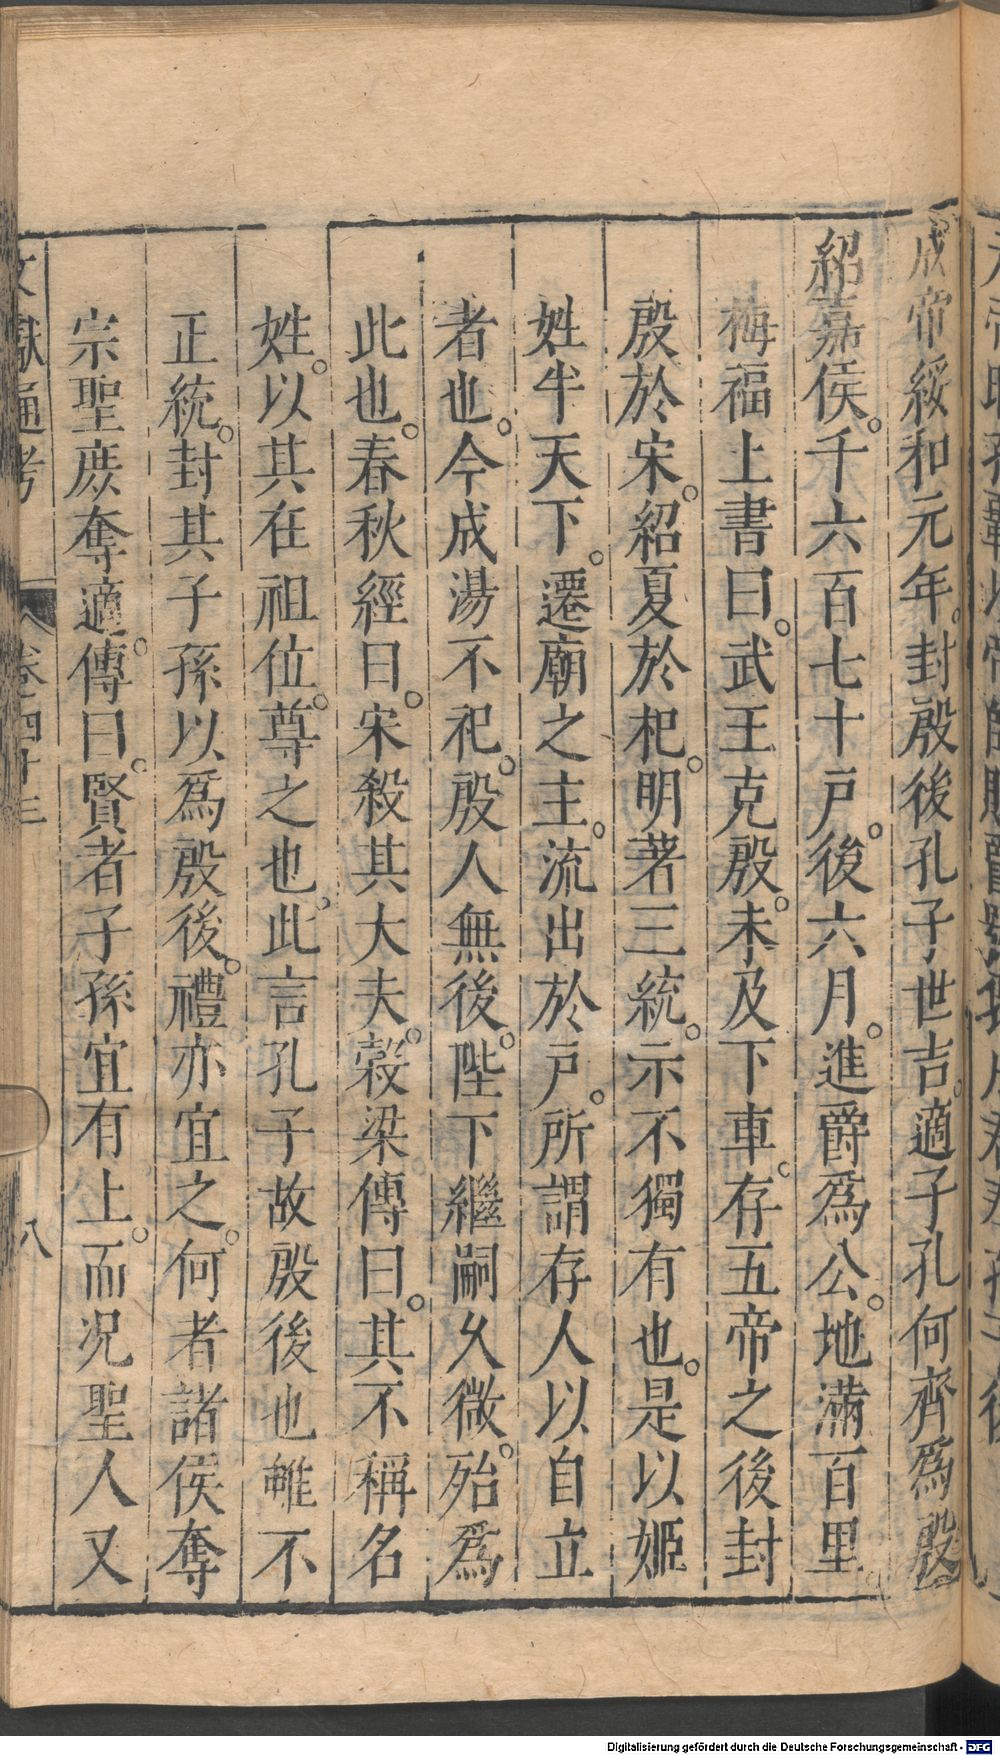 成帝綏和元年。封殷後孔子世吉。適子孔何齊爲殷
紹嘉侯。千六百七十戸。後六月。進爵爲公。地滿百里。
梅福上書曰。武王克殷。未及下車。存五帝之後封
殷於宋。紹夏於杞。明著三統。示不獨有也。是以姬
姓半天下。遷廟之主。流出於戸。所謂存人以自立
者也。今成湯不祀。殷人無後。陛下繼嗣久微。殆爲
此也。春秋經曰。宋殺其大夫。穀梁傳曰。其不稱名
姓。以其在祖位。尊之也。此言孔子故殷後也雖不
正統。封其子孫以爲殷後。禮亦宜之。何者諸侯奪
宗聖庶奪適。傳曰。賢者子孫宜有上。而况聖人又
文獻通考 卷四十三 八
Digitalisierung gefördert durch die Deutsche Forschungsgemeinschaft - DFG